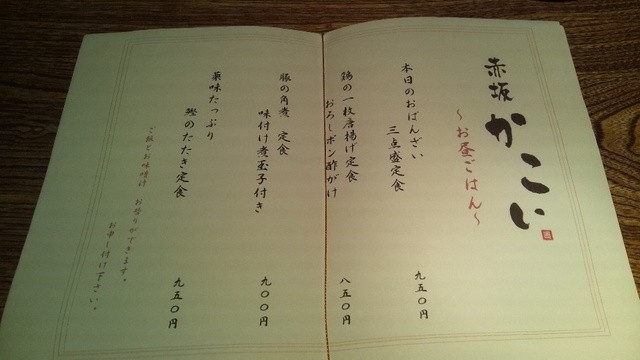 赤坂
かこい
～お昼ごはん～
本日のおばんざい
三点盛定食
九五〇円
鶏の一枚唐揚げ定食
おろしポン酢がけ
八五〇円
豚の角煮 定食
味付け煮玉子付き
九〇〇円
薬味たっぷり
鰹のたたき定食
九五〇円
ご飯とお味噌汁 お替りができます。
お申し付け下さい。